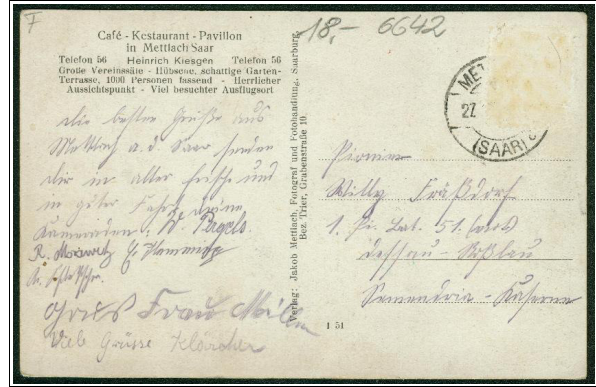 F
18,- 6642
Café - Restaurant - Pavillon
in Mettlach Saar
Telefon 56 Heinrich Kiesgen Telefon 56
Große Vereinssäle - Hübsche, schattige Garten-
Terrasse, 1000 Personen fassend - Herrlicher
Aussichtspunkt - Viel besuchter Ausflugsort
Die besten Grüße aus
Mettlach a. d. Saar senden
dir in alter Frische und
in guter Fahrt deine
Kameraden: W.
R.
Gruß Frau
Viele Grüsse
Verlag: Jakob Mettlach, Fotograf und Fotohandlung, Saarburg
Bez. Trier, Grabenstraße 10
1 51
MET
27
(SAAR)
Pionier
Willy Fraßdorf
1. Pi. Bat. 51. (mot)
Dessau-Roßlau
Kaserne